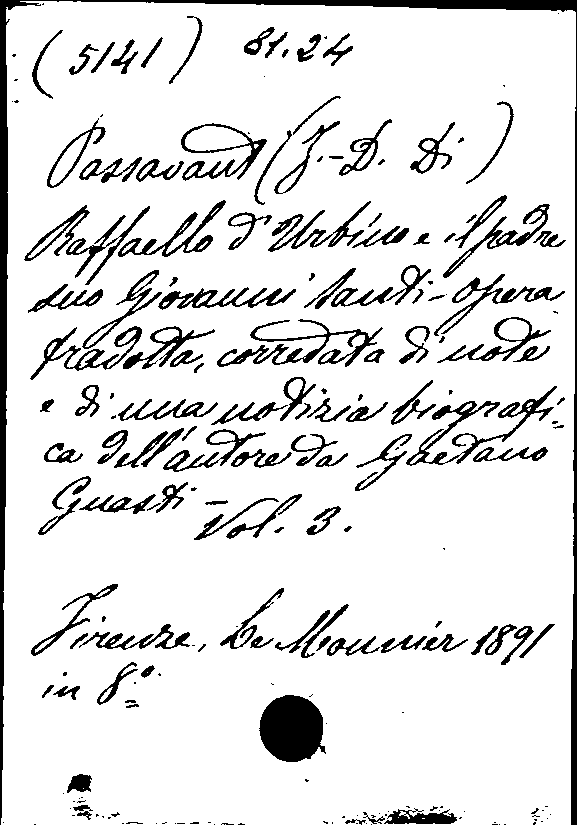 (5141) 81.24
Passavant (J.-D. Di)
Raffaello d'Urbino e il padre
suo Giovanni Santi - opera
tradotta, corredata di note
e di una notizia biografi-
ca dell'autore da Gaetano
Guasti -
Vol. 3.
Firenze, Le Monnier 1891
in 8.º